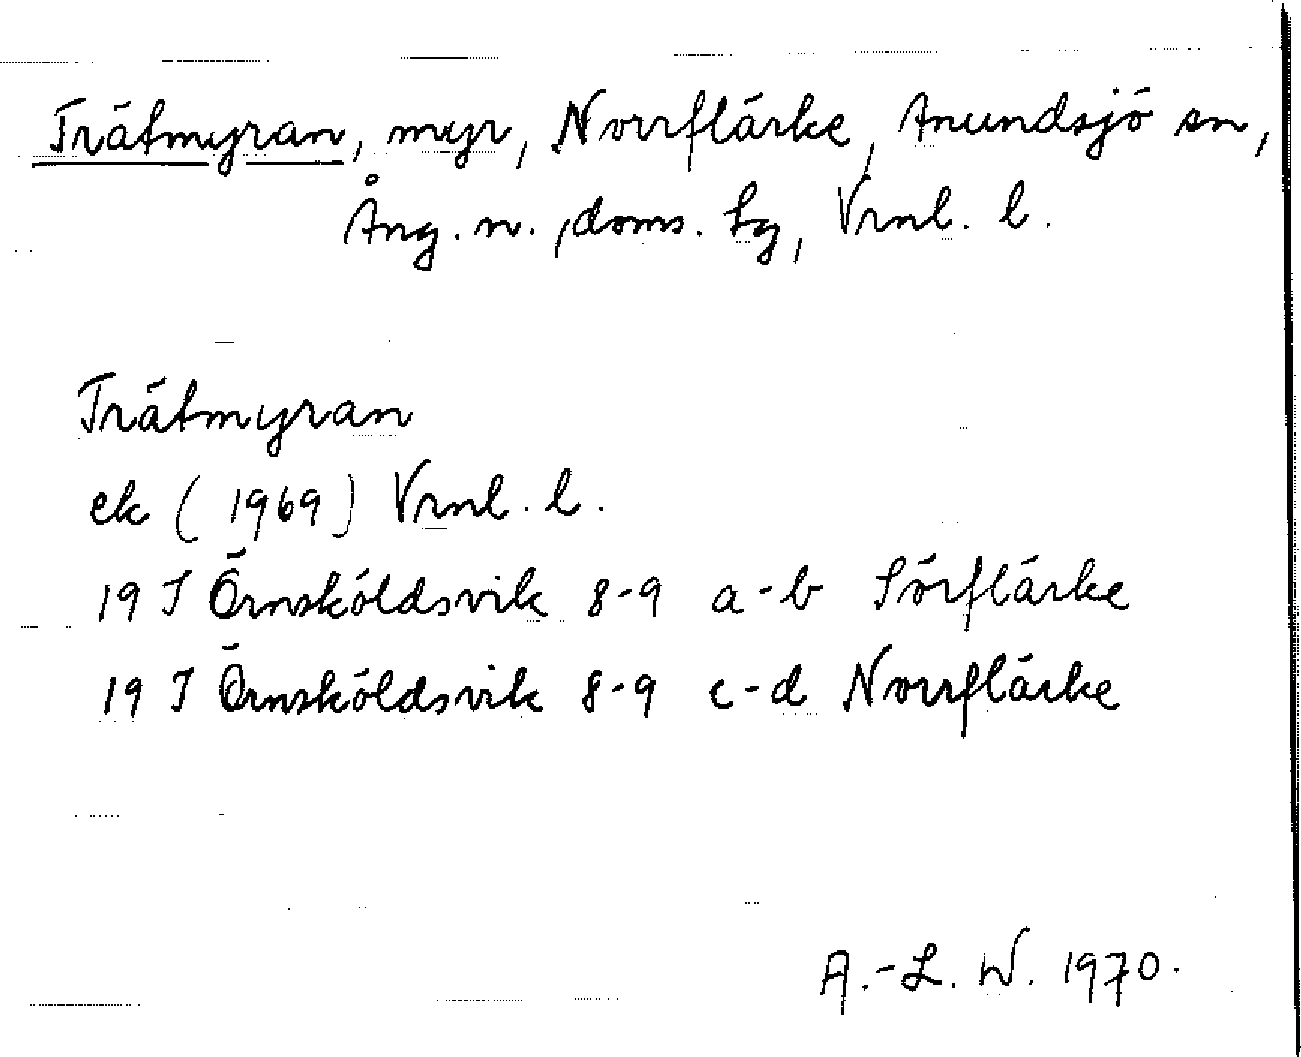 Trätmyran, myr, Norrflärke, Anundsjö sn,
Ång. n., doms. hg, Vrnl. l.
Trätmyran
ek (1969) Vrnl. l.
19 J Örnsköldsvik 8-9 a-b Sörflärke
19 J Örnsköldsvik 8-9 c-d Norrflärke
A.-L. W. 1970.